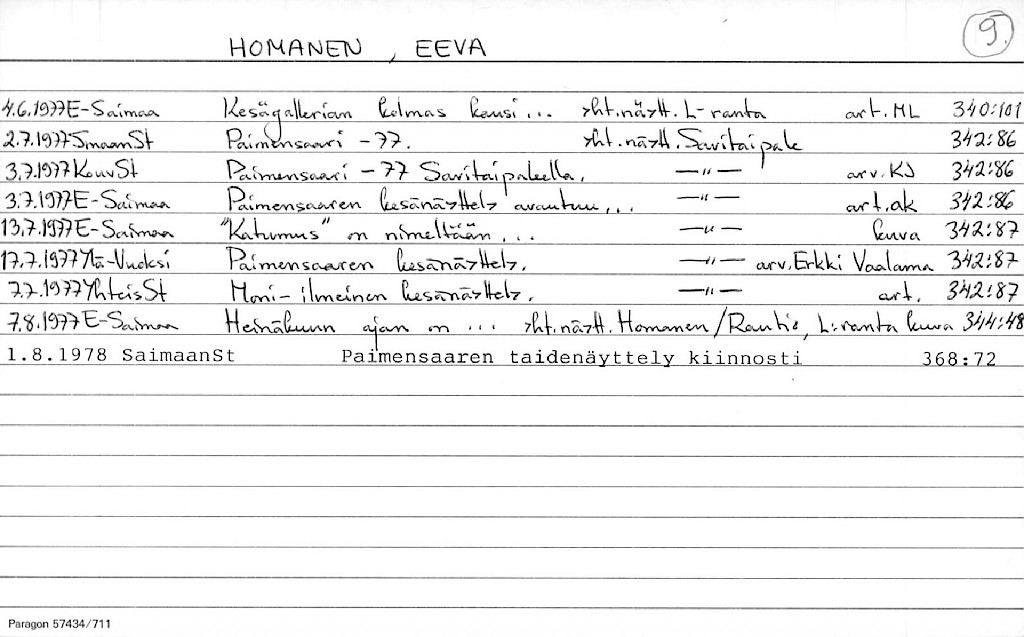 9.
HOMANEN, EEVA
4.6.1977 E-Saimaa Kesägallerian kolmas kausi... yht.näytt. L-ranta art. ML 340:101
2.7.1977 SmaanSt Paimensaari -77. yht.näytt. Savitaipale 342:86
3.7.1977 KouvSt Paimensaari -77 Savitaipaleella. —"— arv. KJ 342:86
3.7.1977 E-Saimaa Paimensaaren kesänäyttely avautuu... —"— art. ak 342:86
13.7.1977 E-Saimaa "Katumus" on nimeltään... —"— kuva 342:87
17.7.1977 Ylä-Vuoksi Paimensaaren kesänäyttely. —"— arv. Erkki Vaalama 342:87
7.7.1977 YhteisSt Moni-ilmeinen kesänäyttely. —"— art. 342:87
7.8.1977 E-Saimaa Heinäkuun ajan on ... yht.näytt. Homanen/Rautio, L:ranta kuva 344:48
1.8.1978 SaimaanSt Paimensaaren taidenäyttely kiinnosti 368:72
Paragon 57434/711